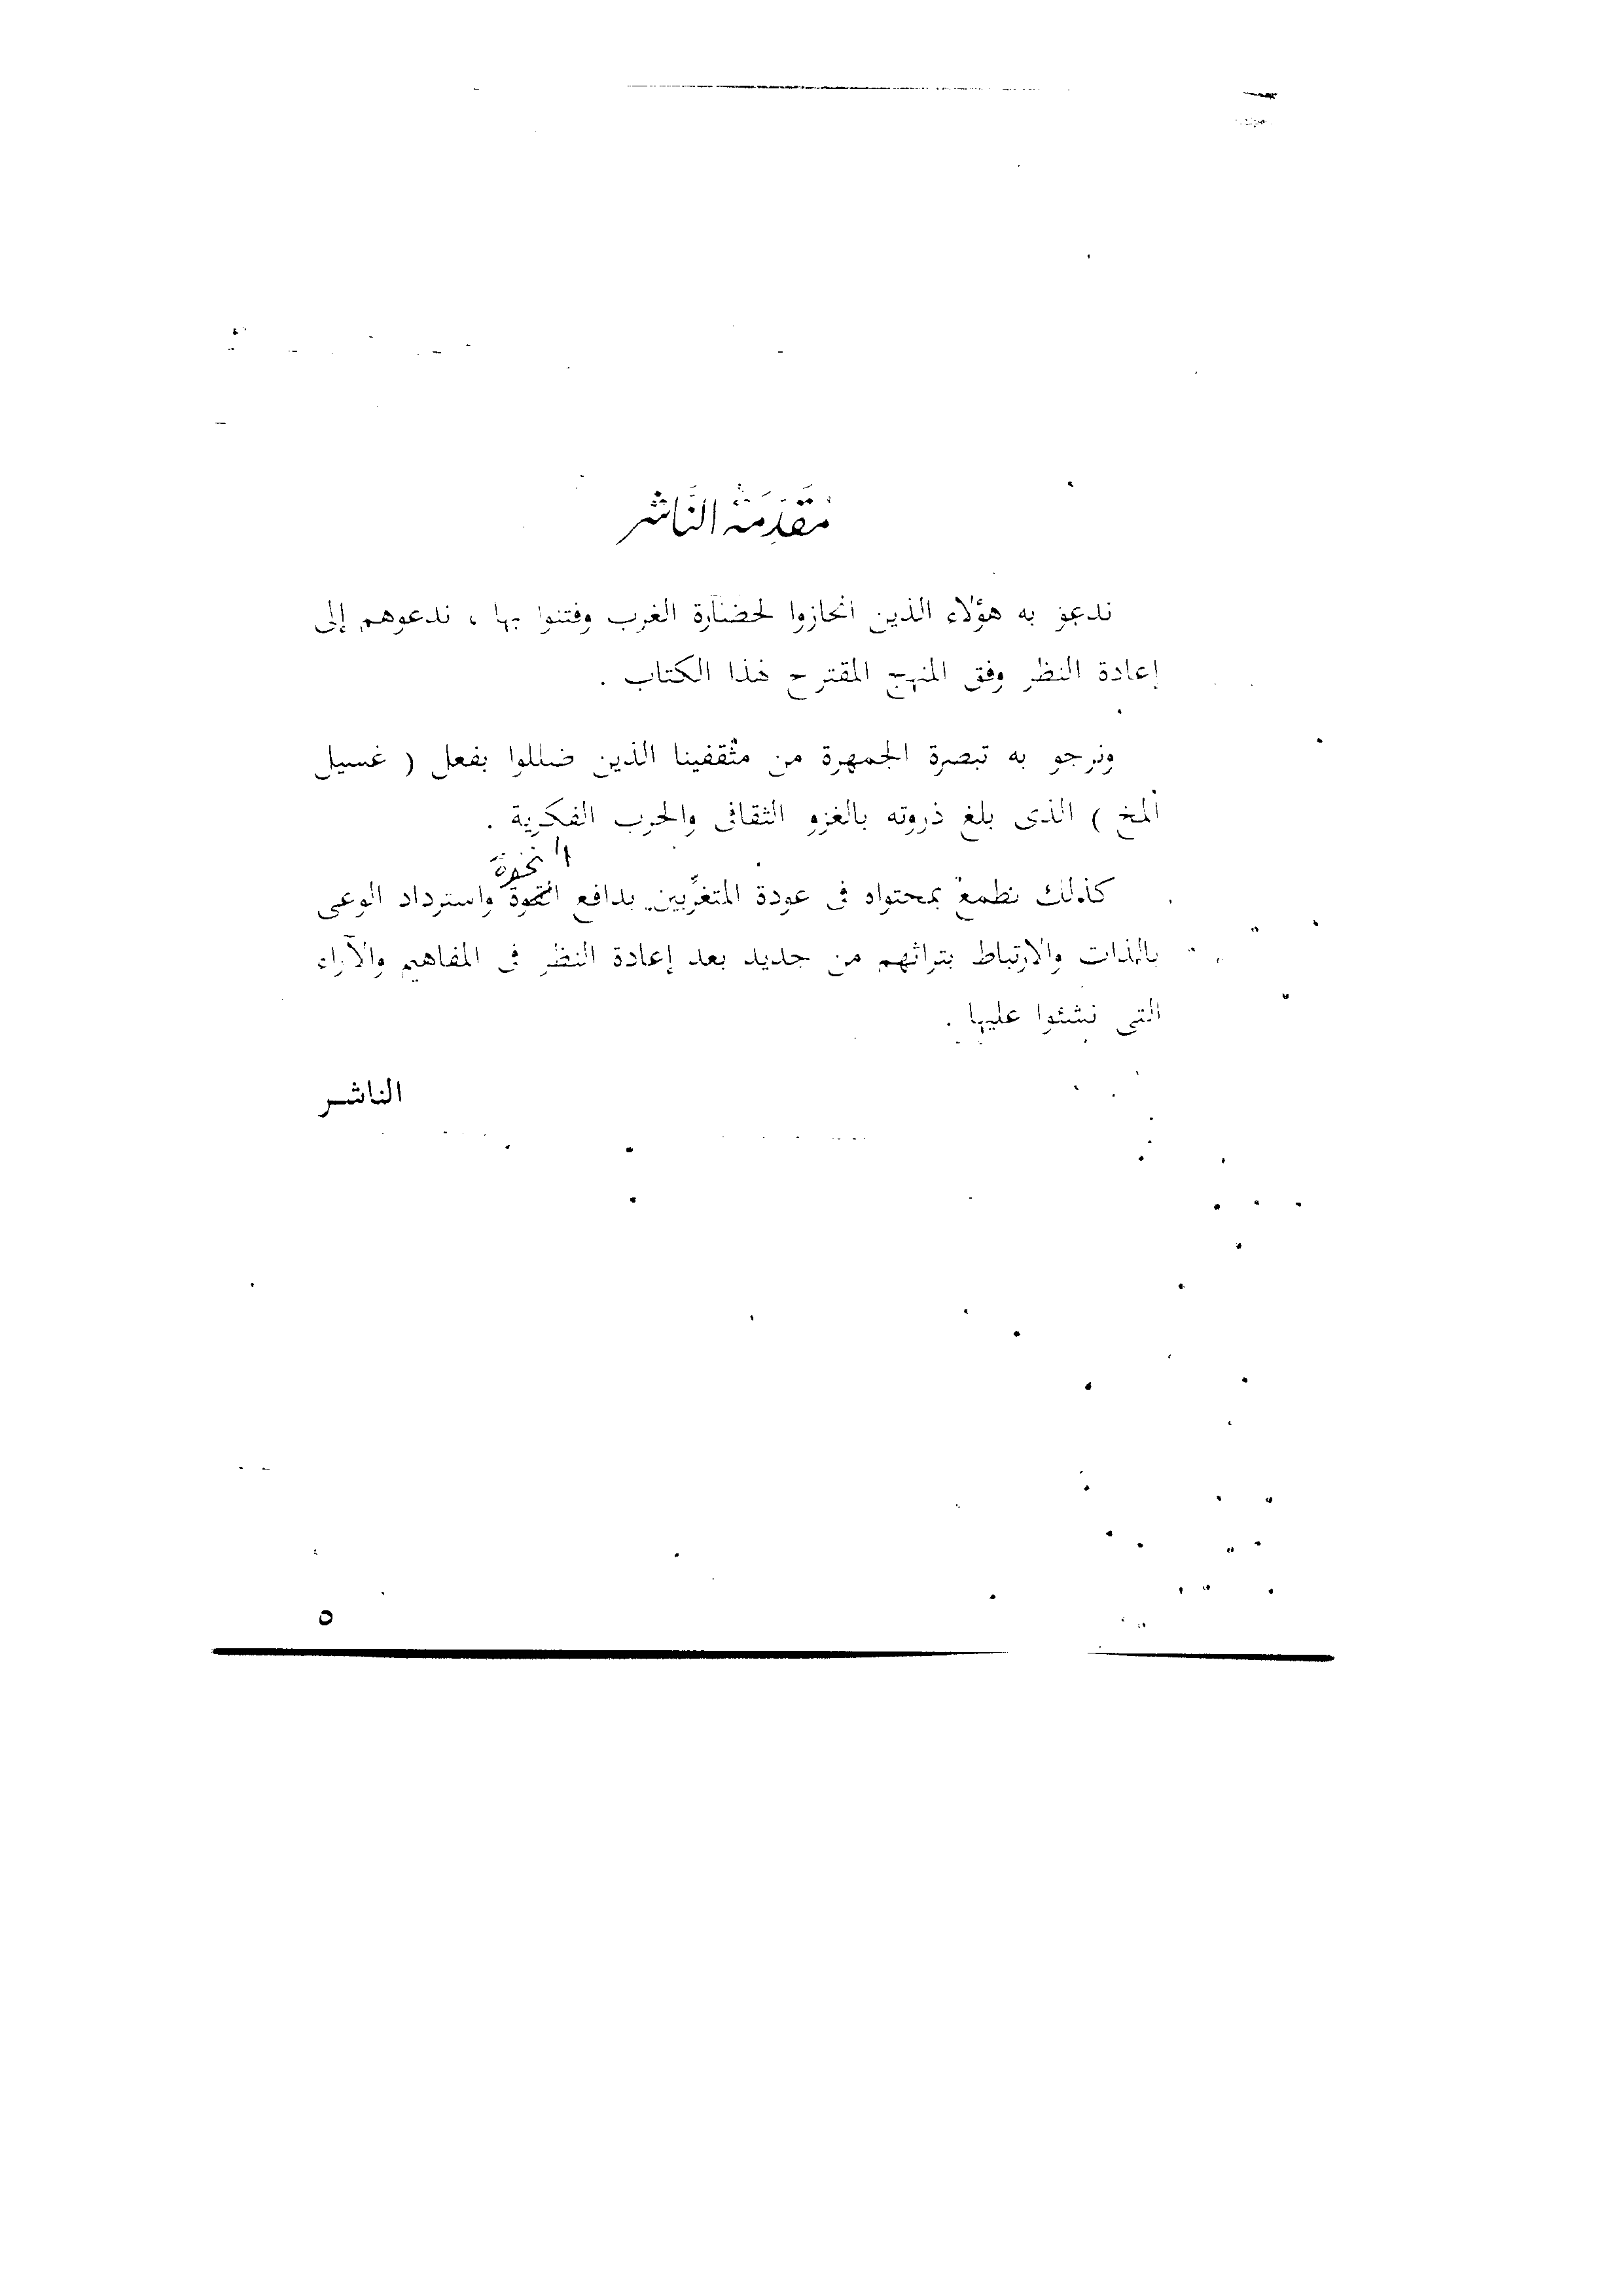 مُقَدِّمَةُ النَّاشر
ندعو به هؤلاء الذين انحازوا لحضارة الغرب وفتنوا بها ، ندعوهم إلى
إعادة النظر وفق المنهج المقترح لهذا الكتاب .
ونرجو به تبصرة الجمهرة من مثقفينا الذين ضللوا بفعل ( غسيل
المخ ) الذى بلغ ذروته بالغزو الثقافى والحرب الفكرية .
النخوة
كذلك نطمع بمحتواه فى عودة المتغرِّبين بدافع واسترداد الوعى
بالذات والارتباط بتراثهم من جديد بعد إعادة النظر فى المفاهيم والآراء
التى نشئوا عليها .
الناشـر
٥